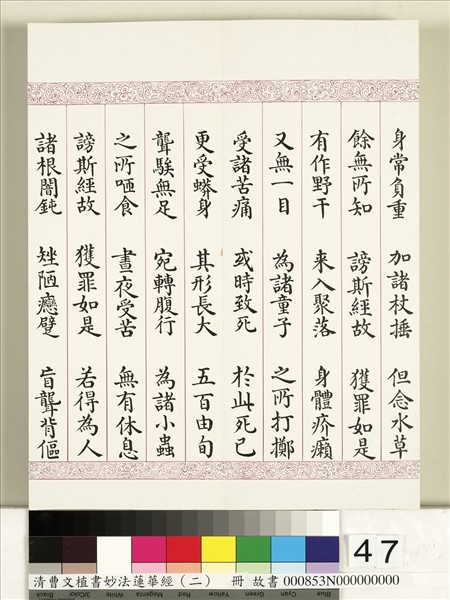 身常負重 加諸杖捶 但念水草
餘無所知 謗斯經故 獲罪如是
有作野干 来入聚落 身體疥癩
又無一目 為諸童子 之所打擲
受諸苦痛 或時致死 於此死已
更受蟒身 其形長大 五百由旬
聾騃無足 宛轉腹行 為諸小蟲
之所咂食 晝夜受苦 無有休息
謗斯經故 獲罪如是 若得為人
諸根闇鈍 矬陋癵躄 盲聾背傴
47
清曹文植書妙法蓮華經（二） 冊 故書 000853N000000000
Black 3/Color White Magenta Red Yellow Green Cyan Blue